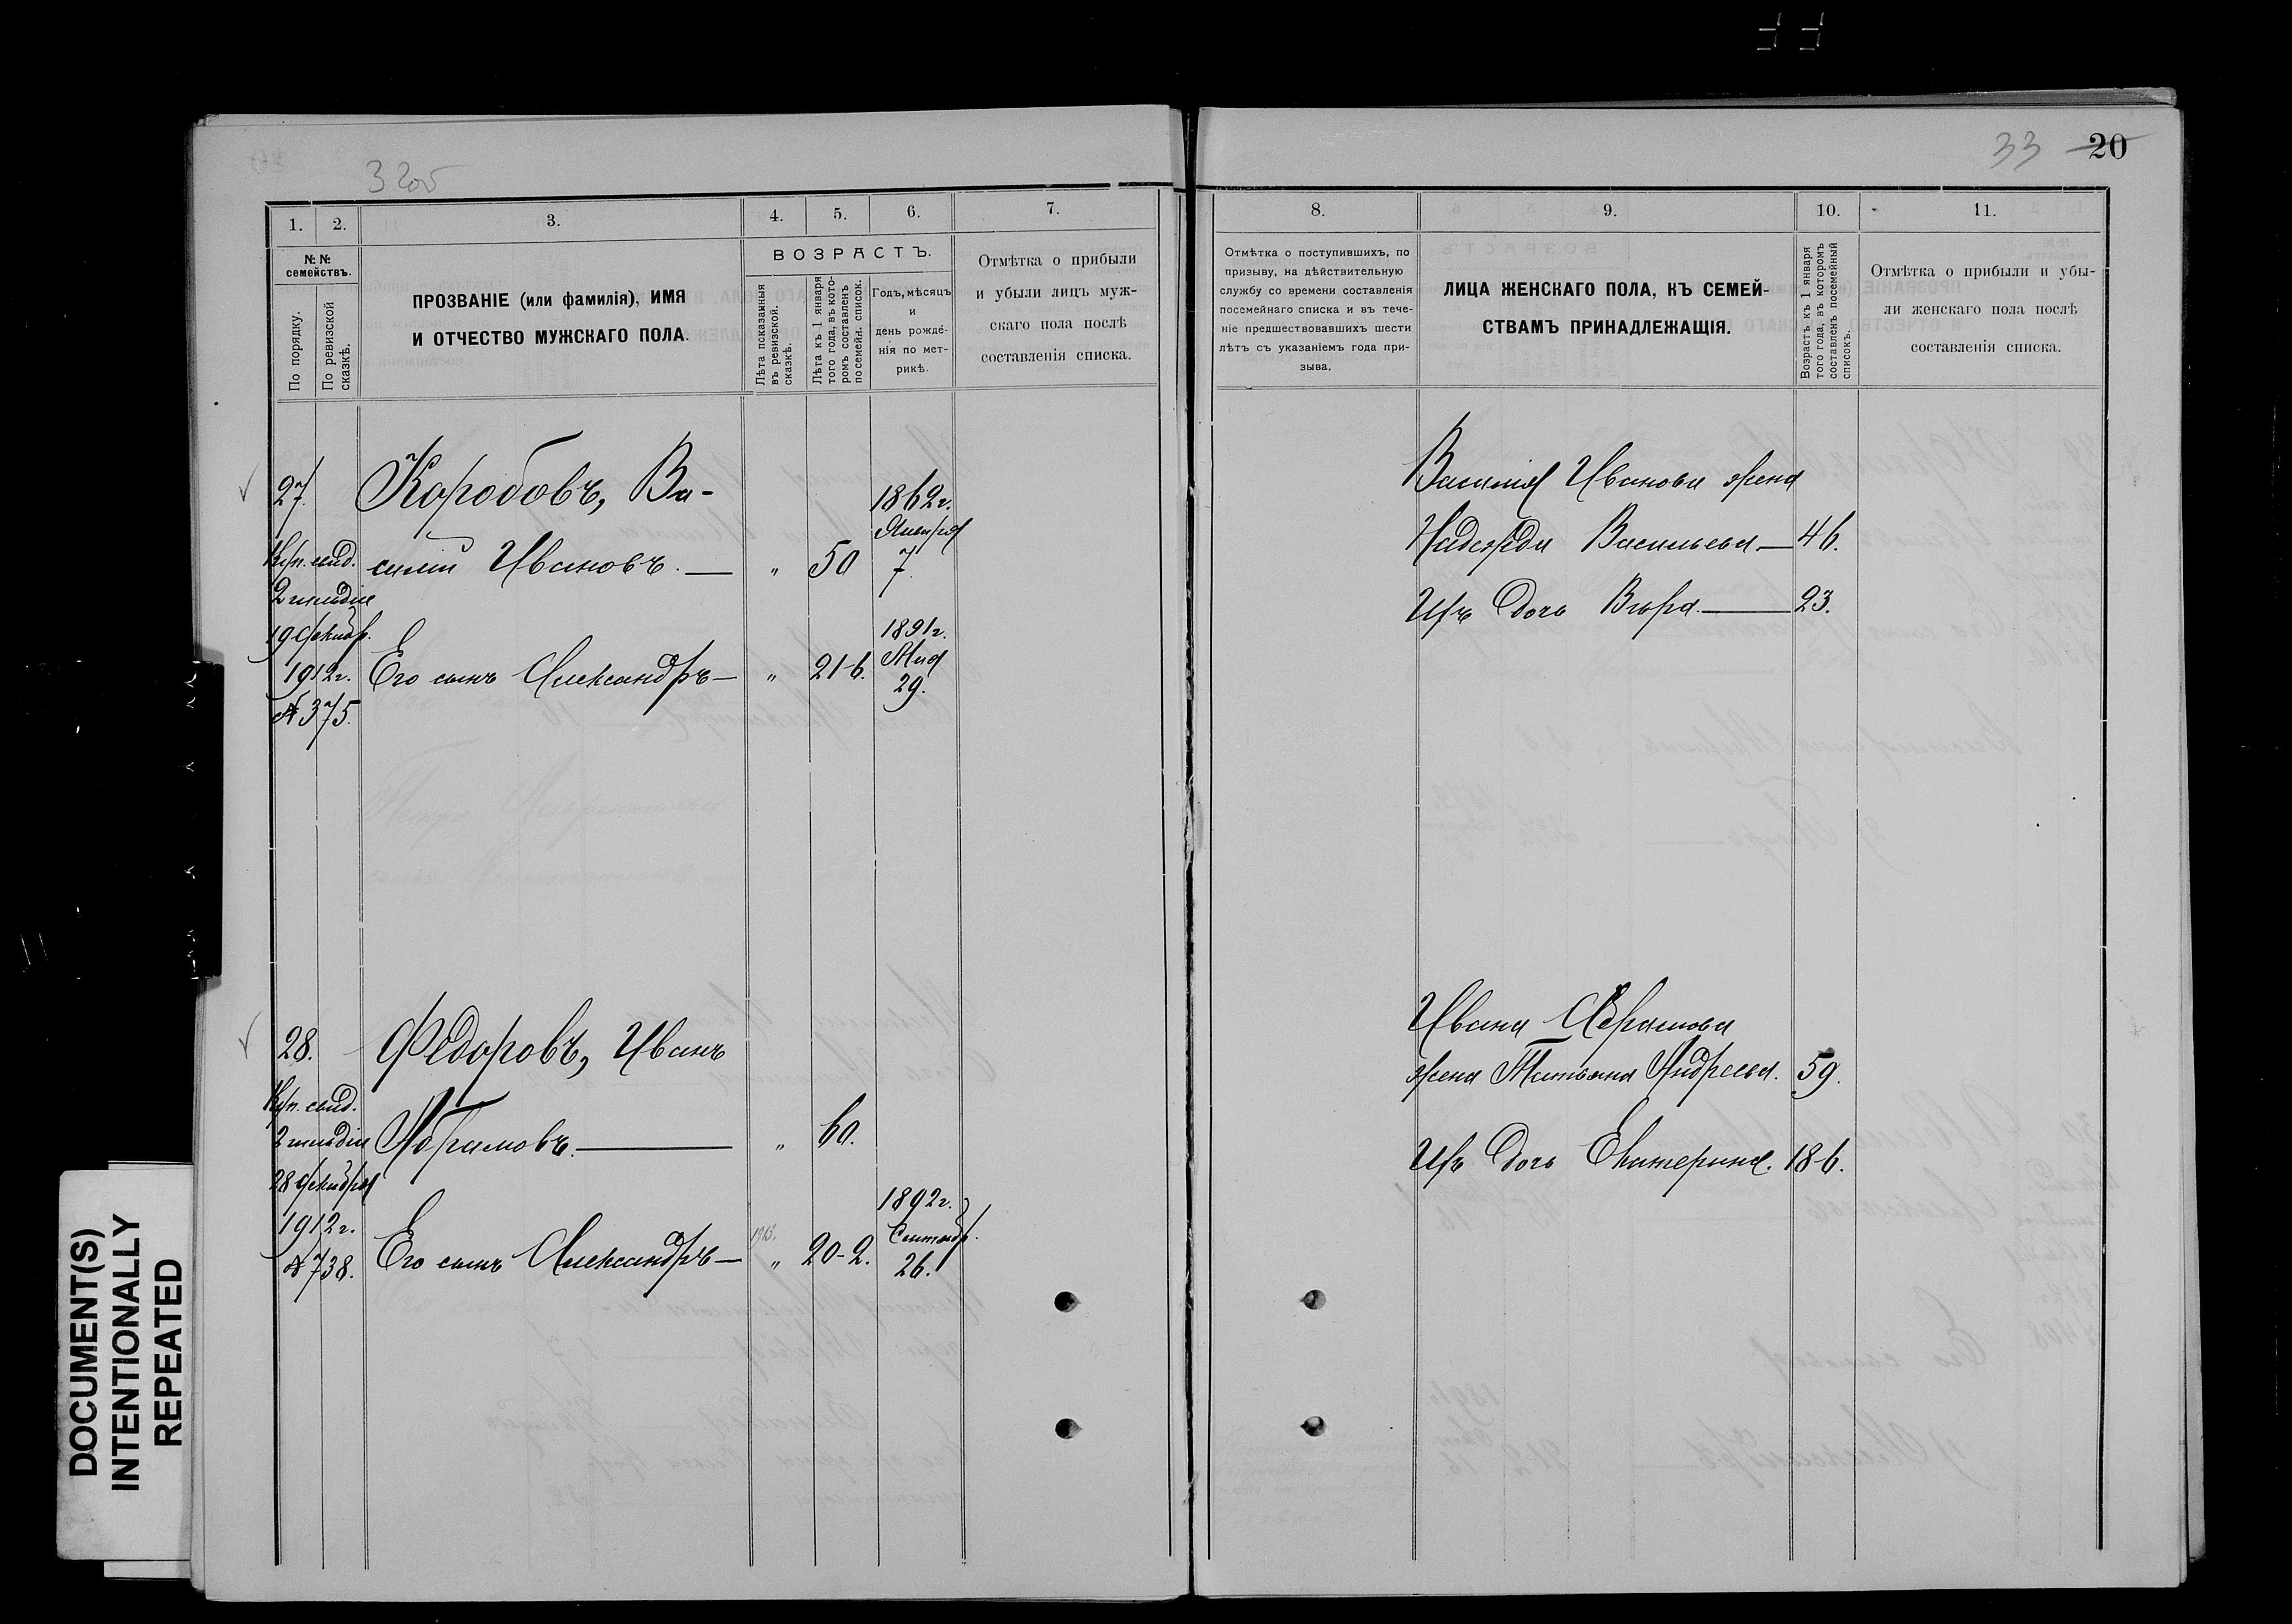 3 20б
1.
2.
3.
4.
5.
6.
7.
№ №
семействъ.
По порядку.
По ревизской
сказкѣ.
ПРОЗВАНІЕ (или фамилія), ИМЯ
И ОТЧЕСТВО МУЖСКАГО ПОЛА.
ВОЗРАСТЪ.
Лѣта показанныя
въ ревизской.
сказкѣ.
Лѣта къ 1 января
того года, въ кото-
ромъ составленъ
посемейн. список.
Годъ, мѣсяцъ
и
день рожде-
нія по мет-
рикѣ.
Отмѣтка о прибыли
и убыли лицъ муж-
скаго пола послѣ
составленія списка.
27.
Коробовъ, Ва-
1862 г.
Января
Куп. свид.
силій Ивановъ. — „ 50 7.
2 гильдіи
19 Декабр.
1891 г.
Мая
1912 г.
Его сынъ Александръ — „ 21-6. 29.
№ 375.
28.
Федоровъ, Иванъ
Куп. свид.
2 гильдіи
Абрамовъ. — „ 60.
28 Декабря
1892 г.
1912 г.
Сентябр.
1913.
№ 738.
Его сынъ Александръ — „ 20-2. 26.
33 20
8.
9.
10.
11.
Отмѣтка о поступившихъ, по
призыву, на дѣйствительную
службу со времени составленія
посемейнаго списка и въ тече-
ніе предшествовавшихъ шести
лѣтъ съ указаніемъ года при-
зыва.
ЛИЦА ЖЕНСКАГО ПОЛА, КЪ СЕМЕЙ-
СТВАМЪ ПРИНАДЛЕЖАЩІЯ.
Возрастъ къ 1 января
того года, въ которомъ
составленъ посемейный
списокъ.
Отмѣтка о прибыли и убы-
ли женскаго пола послѣ
составленія списка.
Василія Иванова жена
Надежда Васильева — 46.
Ихъ дочь Вѣра — 23.
Ивана Абрамова
жена Татьяна Андреева. 59.
Ихъ дочь Екатерина. 18-6.
DOCUMENT(S)
INTENTIONALLY
REPEATED